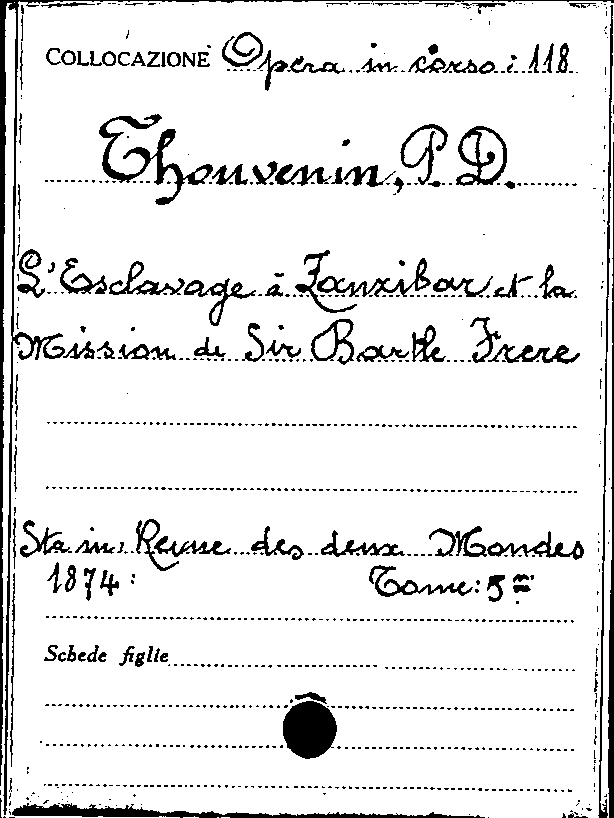 COLLOCAZIONE Opera in corso: 118
Thouvenin, P. D.
L'Esclavage à Zanzibar et la
Mission de Sir Bartle Frere
Sta in: Revue des deux Mondes
1874: Tome: 5me
Schede figlie